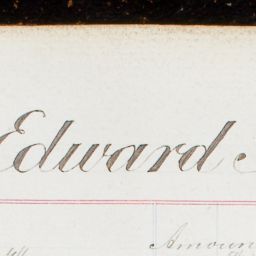 Edward
Amoun